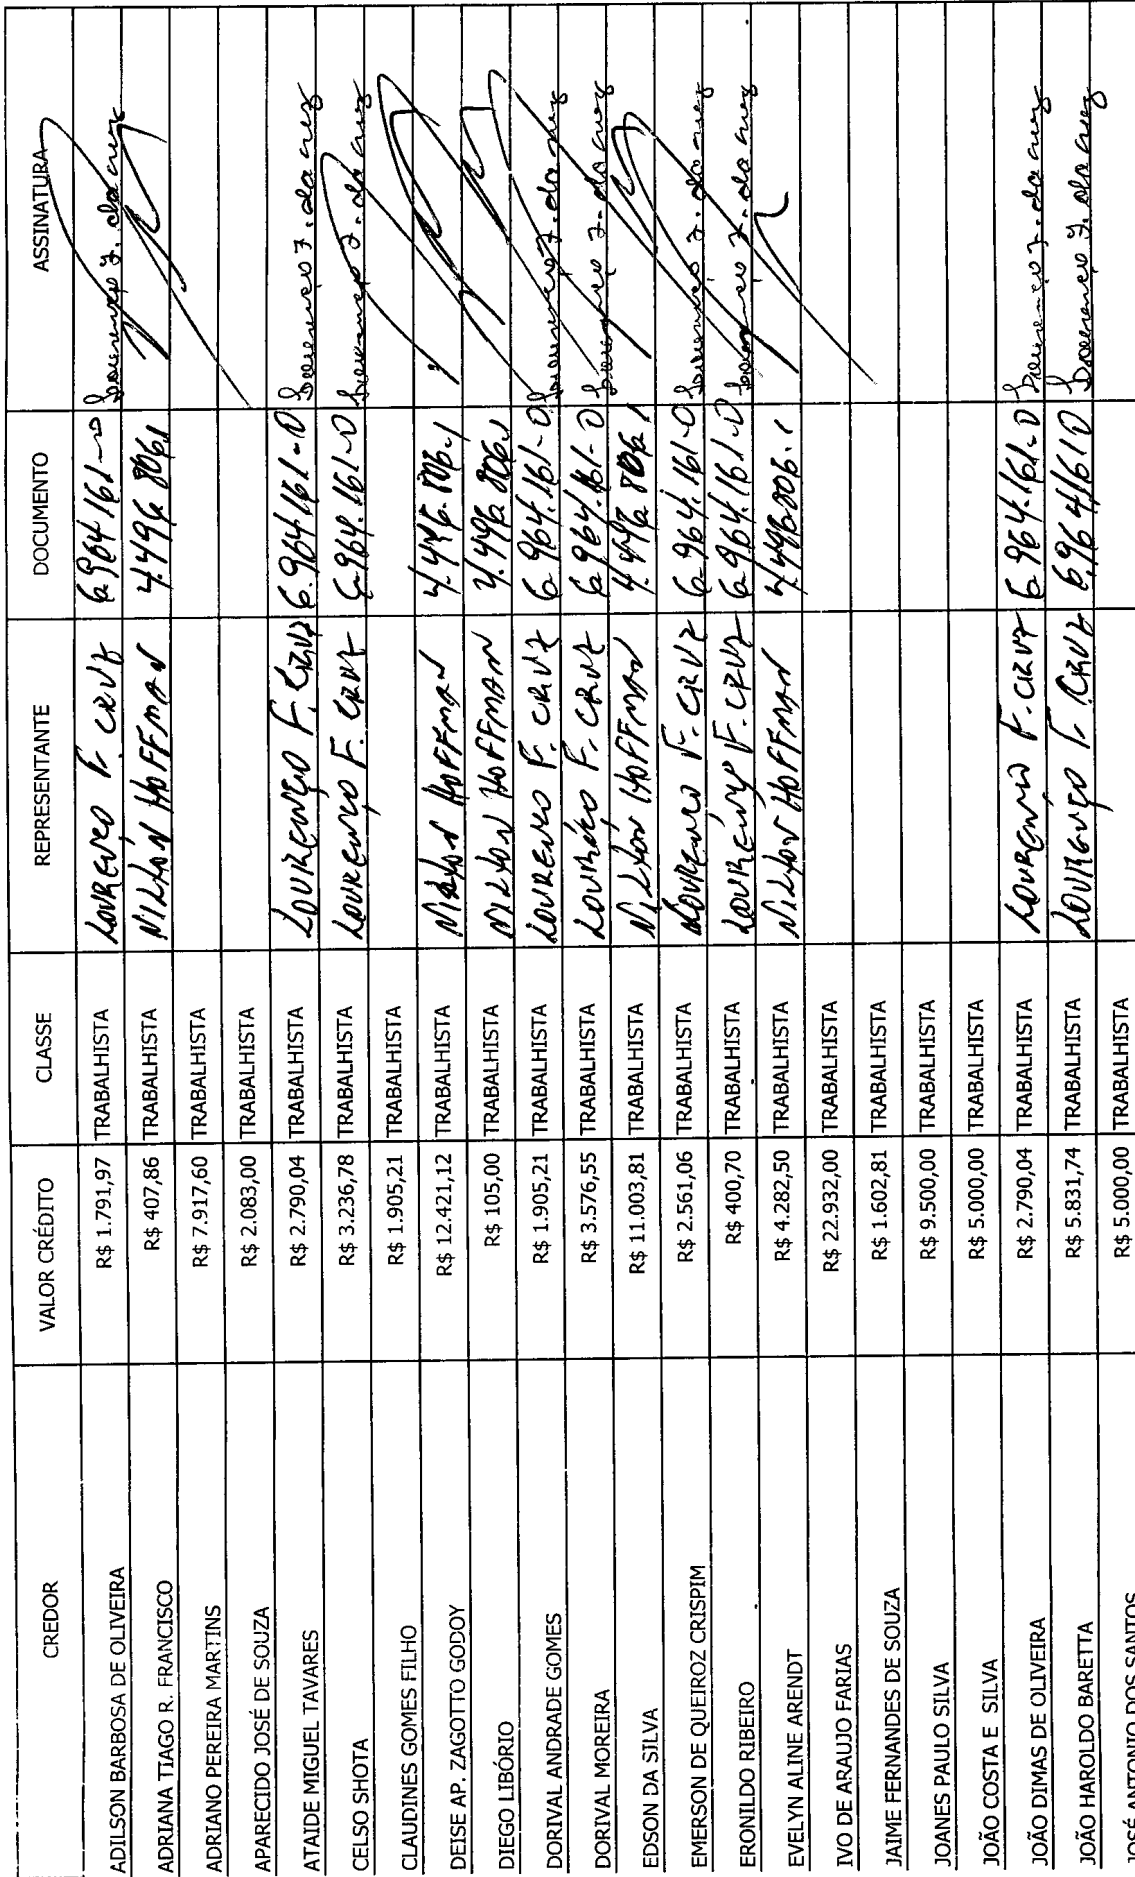 CREDOR VALOR CRÉDITO CLASSE REPRESENTANTE DOCUMENTO ASSINATURA
ADILSON BARBOSA DE OLIVEIRA R$ 1.791,97 TRABALHISTA LOURENÇO F. CRUZ 6.964 161-0 Lourenço F. da Cruz
ADRIANA TIAGO R. FRANCISCO R$ 407,86 TRABALHISTA NILTON HOFFMAN 4.496.806.1
ADRIANO PEREIRA MARTINS R$ 7.917,60 TRABALHISTA
APARECIDO JOSÉ DE SOUZA R$ 2.083,00 TRABALHISTA
ATAIDE MIGUEL TAVARES R$ 2.790,04 TRABALHISTA LOURENÇO F. CRUZ 6.964.161-0 Lourenço F. da Cruz
CELSO SHOTA R$ 3.236,78 TRABALHISTA LOURENÇO F. CRUZ 6.964.161-0 Lourenço F. da Cruz
CLAUDINES GOMES FILHO R$ 1.905,21 TRABALHISTA
DEISE AP. ZAGOTTO GODOY R$ 12.421,12 TRABALHISTA NILTON HOFFMAN 4.496.806.1
DIEGO LIBÓRIO R$ 105,00 TRABALHISTA NILTON HOFFMAN 4.496.806.1
DORIVAL ANDRADE GOMES R$ 1.905,21 TRABALHISTA LOURENÇO F. CRUZ 6.964.161-0 Lourenço F. da Cruz
DORIVAL MOREIRA R$ 3.576,55 TRABALHISTA LOURENÇO F. CRUZ 6.964.161-0 Lourenço F. da Cruz
EDSON DA SILVA R$ 11.003,81 TRABALHISTA NILTON HOFFMAN 4.496.806.1
EMERSON DE QUEIROZ CRISPIM R$ 2.561,06 TRABALHISTA LOURENÇO F. CRUZ 6.964.161-0 Lourenço F. da Cruz
ERONILDO RIBEIRO R$ 400,70 TRABALHISTA LOURENÇO F. CRUZ 6.964.161-0 Lourenço F. da Cruz
EVELYN ALINE ARENDT R$ 4.282,50 TRABALHISTA NILTON HOFFMAN 4.496.806.1
IVO DE ARAUJO FARIAS R$ 22.932,00 TRABALHISTA
JAIME FERNANDES DE SOUZA R$ 1.602,81 TRABALHISTA
JOANES PAULO SILVA R$ 9.500,00 TRABALHISTA
JOÃO COSTA E SILVA R$ 5.000,00 TRABALHISTA
JOÃO DIMAS DE OLIVEIRA R$ 2.790,04 TRABALHISTA LOURENÇO F. CRUZ 6.964.161-0 Lourenço F. da Cruz
JOÃO HAROLDO BARETTA R$ 5.831,74 TRABALHISTA LOURENÇO F. CRUZ 6.964.161 0 Lourenço F. da Cruz
JOSÉ ANTONIO DOS SANTOS R$ 5.000,00 TRABALHISTA